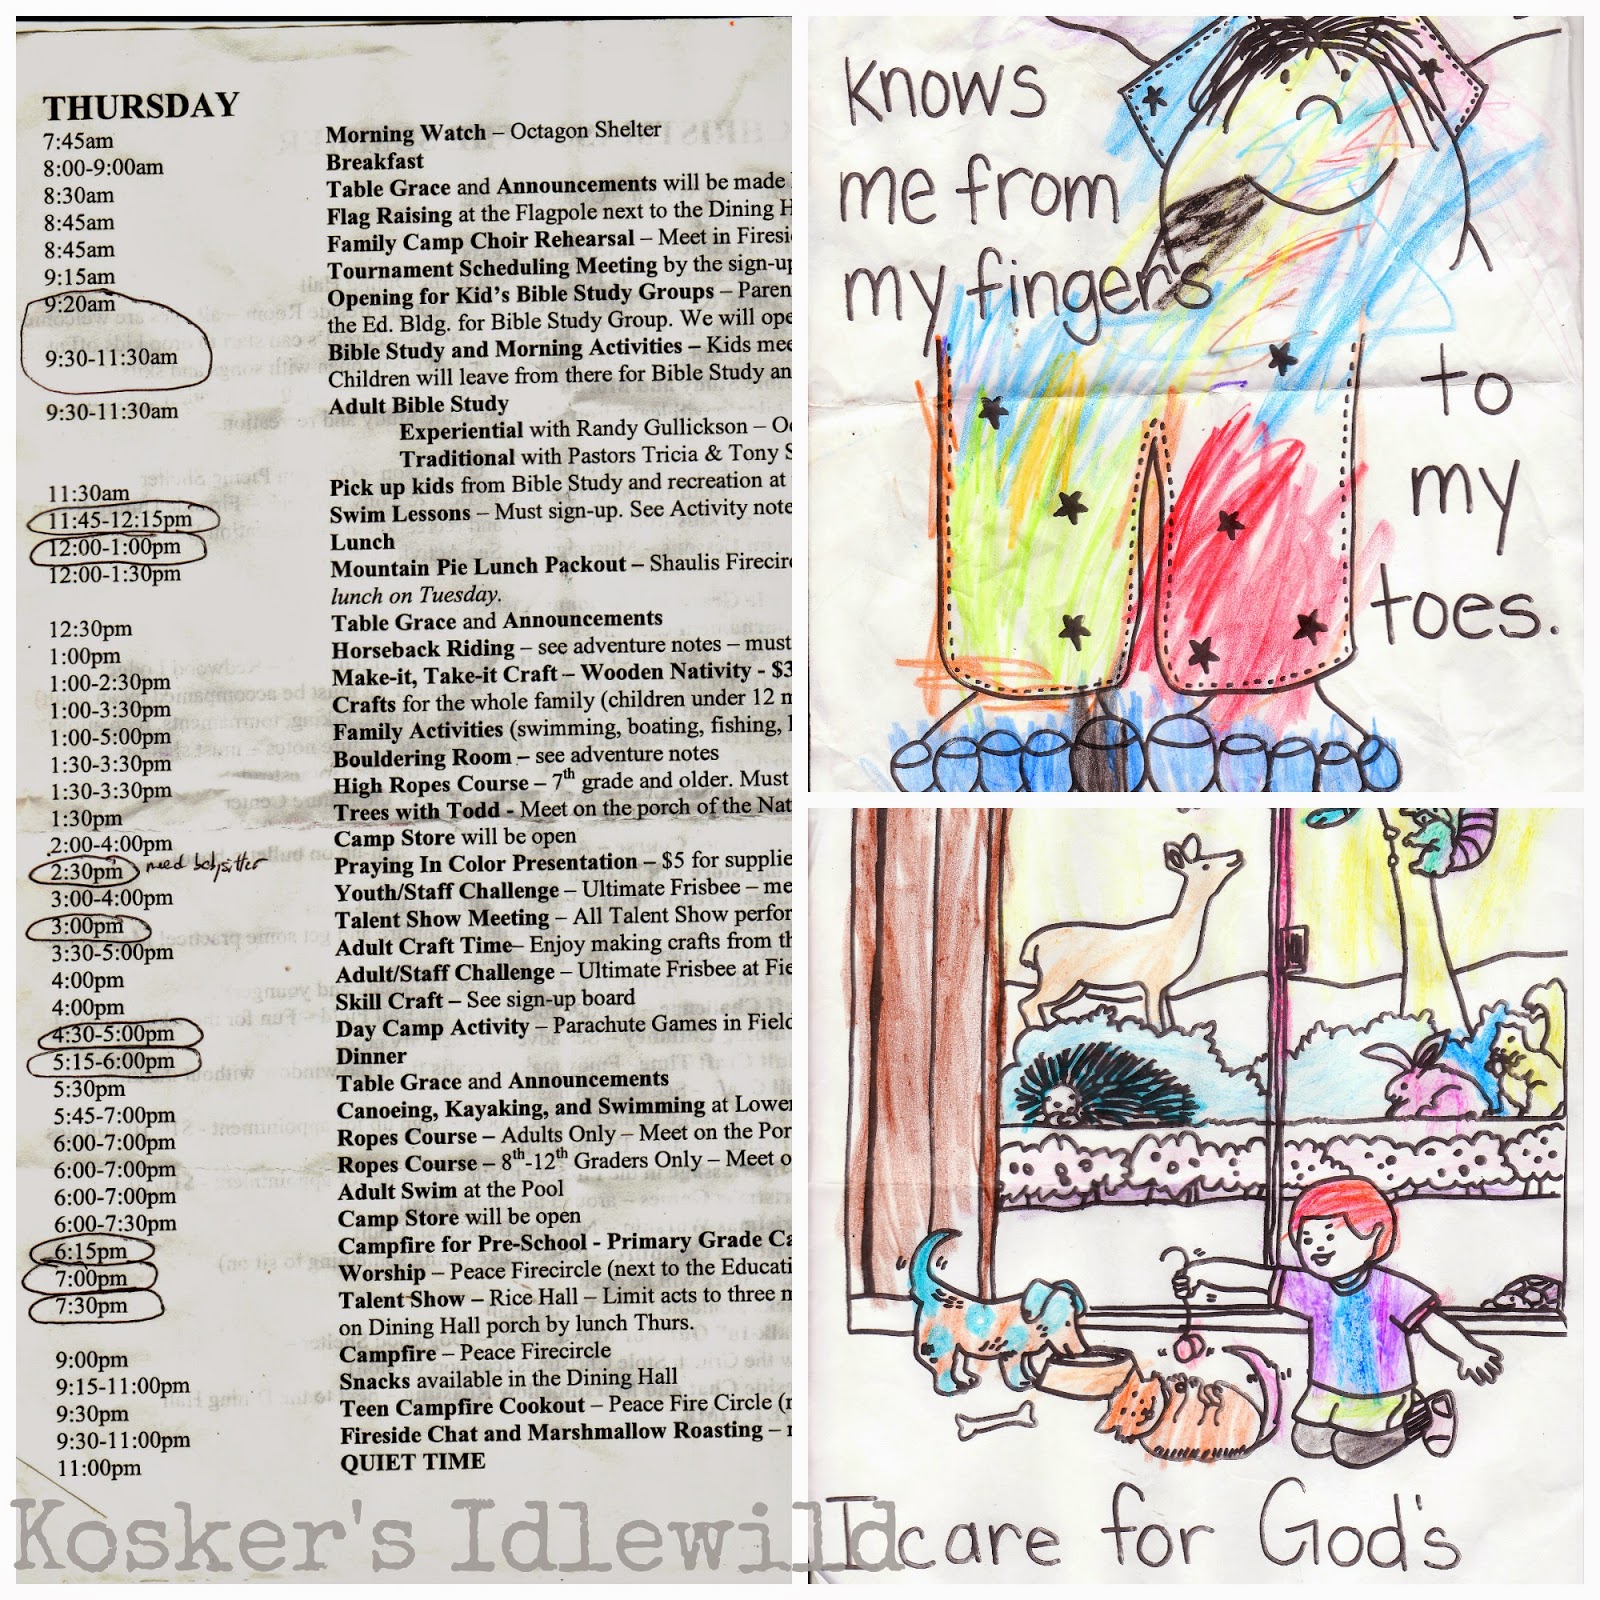 THURSDAY
7:45am Morning Watch – Octagon Shelter
8:00-9:00am Breakfast
8:30am Table Grace and Announcements will be made
8:45am Flag Raising at the Flagpole next to the Dining H
8:45am Family Camp Choir Rehearsal – Meet in Firesi
9:15am Tournament Scheduling Meeting by the sign-up
9:20am Opening for Kid's Bible Study Groups – Paren
the Ed. Bldg. for Bible Study Group. We will ope
9:30-11:30am Bible Study and Morning Activities – Kids mee
Children will leave from there for Bible Study an
9:30-11:30am Adult Bible Study
Experiential with Randy Gullickson – Oc
Traditional with Pastors Tricia & Tony S
11:30am Pick up kids from Bible Study and recreation at
11:45-12:15pm Swim Lessons – Must sign-up. See Activity note
12:00-1:00pm Lunch
12:00-1:30pm Mountain Pie Lunch Packout – Shaulis Firecirc
lunch on Tuesday.
12:30pm Table Grace and Announcements
1:00pm Horseback Riding – see adventure notes – must
1:00-2:30pm Make-it, Take-it Craft – Wooden Nativity - $3
1:00-3:30pm Crafts for the whole family (children under 12 m
1:00-5:00pm Family Activities (swimming, boating, fishing,
1:30-3:30pm Bouldering Room – see adventure notes
1:30-3:30pm High Ropes Course – 7th grade and older. Must
1:30pm Trees with Todd - Meet on the porch of the Nat
2:00-4:00pm Camp Store will be open
2:30pm need babysitter Praying In Color Presentation – $5 for supplie
3:00-4:00pm Youth/Staff Challenge – Ultimate Frisbee – me
3:00pm Talent Show Meeting – All Talent Show perfor
3:30-5:00pm Adult Craft Time– Enjoy making crafts from th
4:00pm Adult/Staff Challenge – Ultimate Frisbee at Fie
4:00pm Skill Craft – See sign-up board
4:30-5:00pm Day Camp Activity – Parachute Games in Field
5:15-6:00pm Dinner
5:30pm Table Grace and Announcements
5:45-7:00pm Canoeing, Kayaking, and Swimming at Lower
6:00-7:00pm Ropes Course – Adults Only – Meet on the Por
6:00-7:00pm Ropes Course – 8th-12th Graders Only – Meet o
6:00-7:00pm Adult Swim at the Pool
6:00-7:30pm Camp Store will be open
6:15pm Campfire for Pre-School - Primary Grade Ca
7:00pm Worship – Peace Firecircle (next to the Educati
7:30pm Talent Show – Rice Hall – Limit acts to three m
on Dining Hall porch by lunch Thurs.
9:00pm Campfire – Peace Firecircle
9:15-11:00pm Snacks available in the Dining Hall
9:30pm Teen Campfire Cookout – Peace Fire Circle (
9:30-11:00pm Fireside Chat and Marshmallow Roasting –
11:00pm QUIET TIME
Kosker's Idlewild
knows
me from
my fingers
to
my
toes.
I care for God's